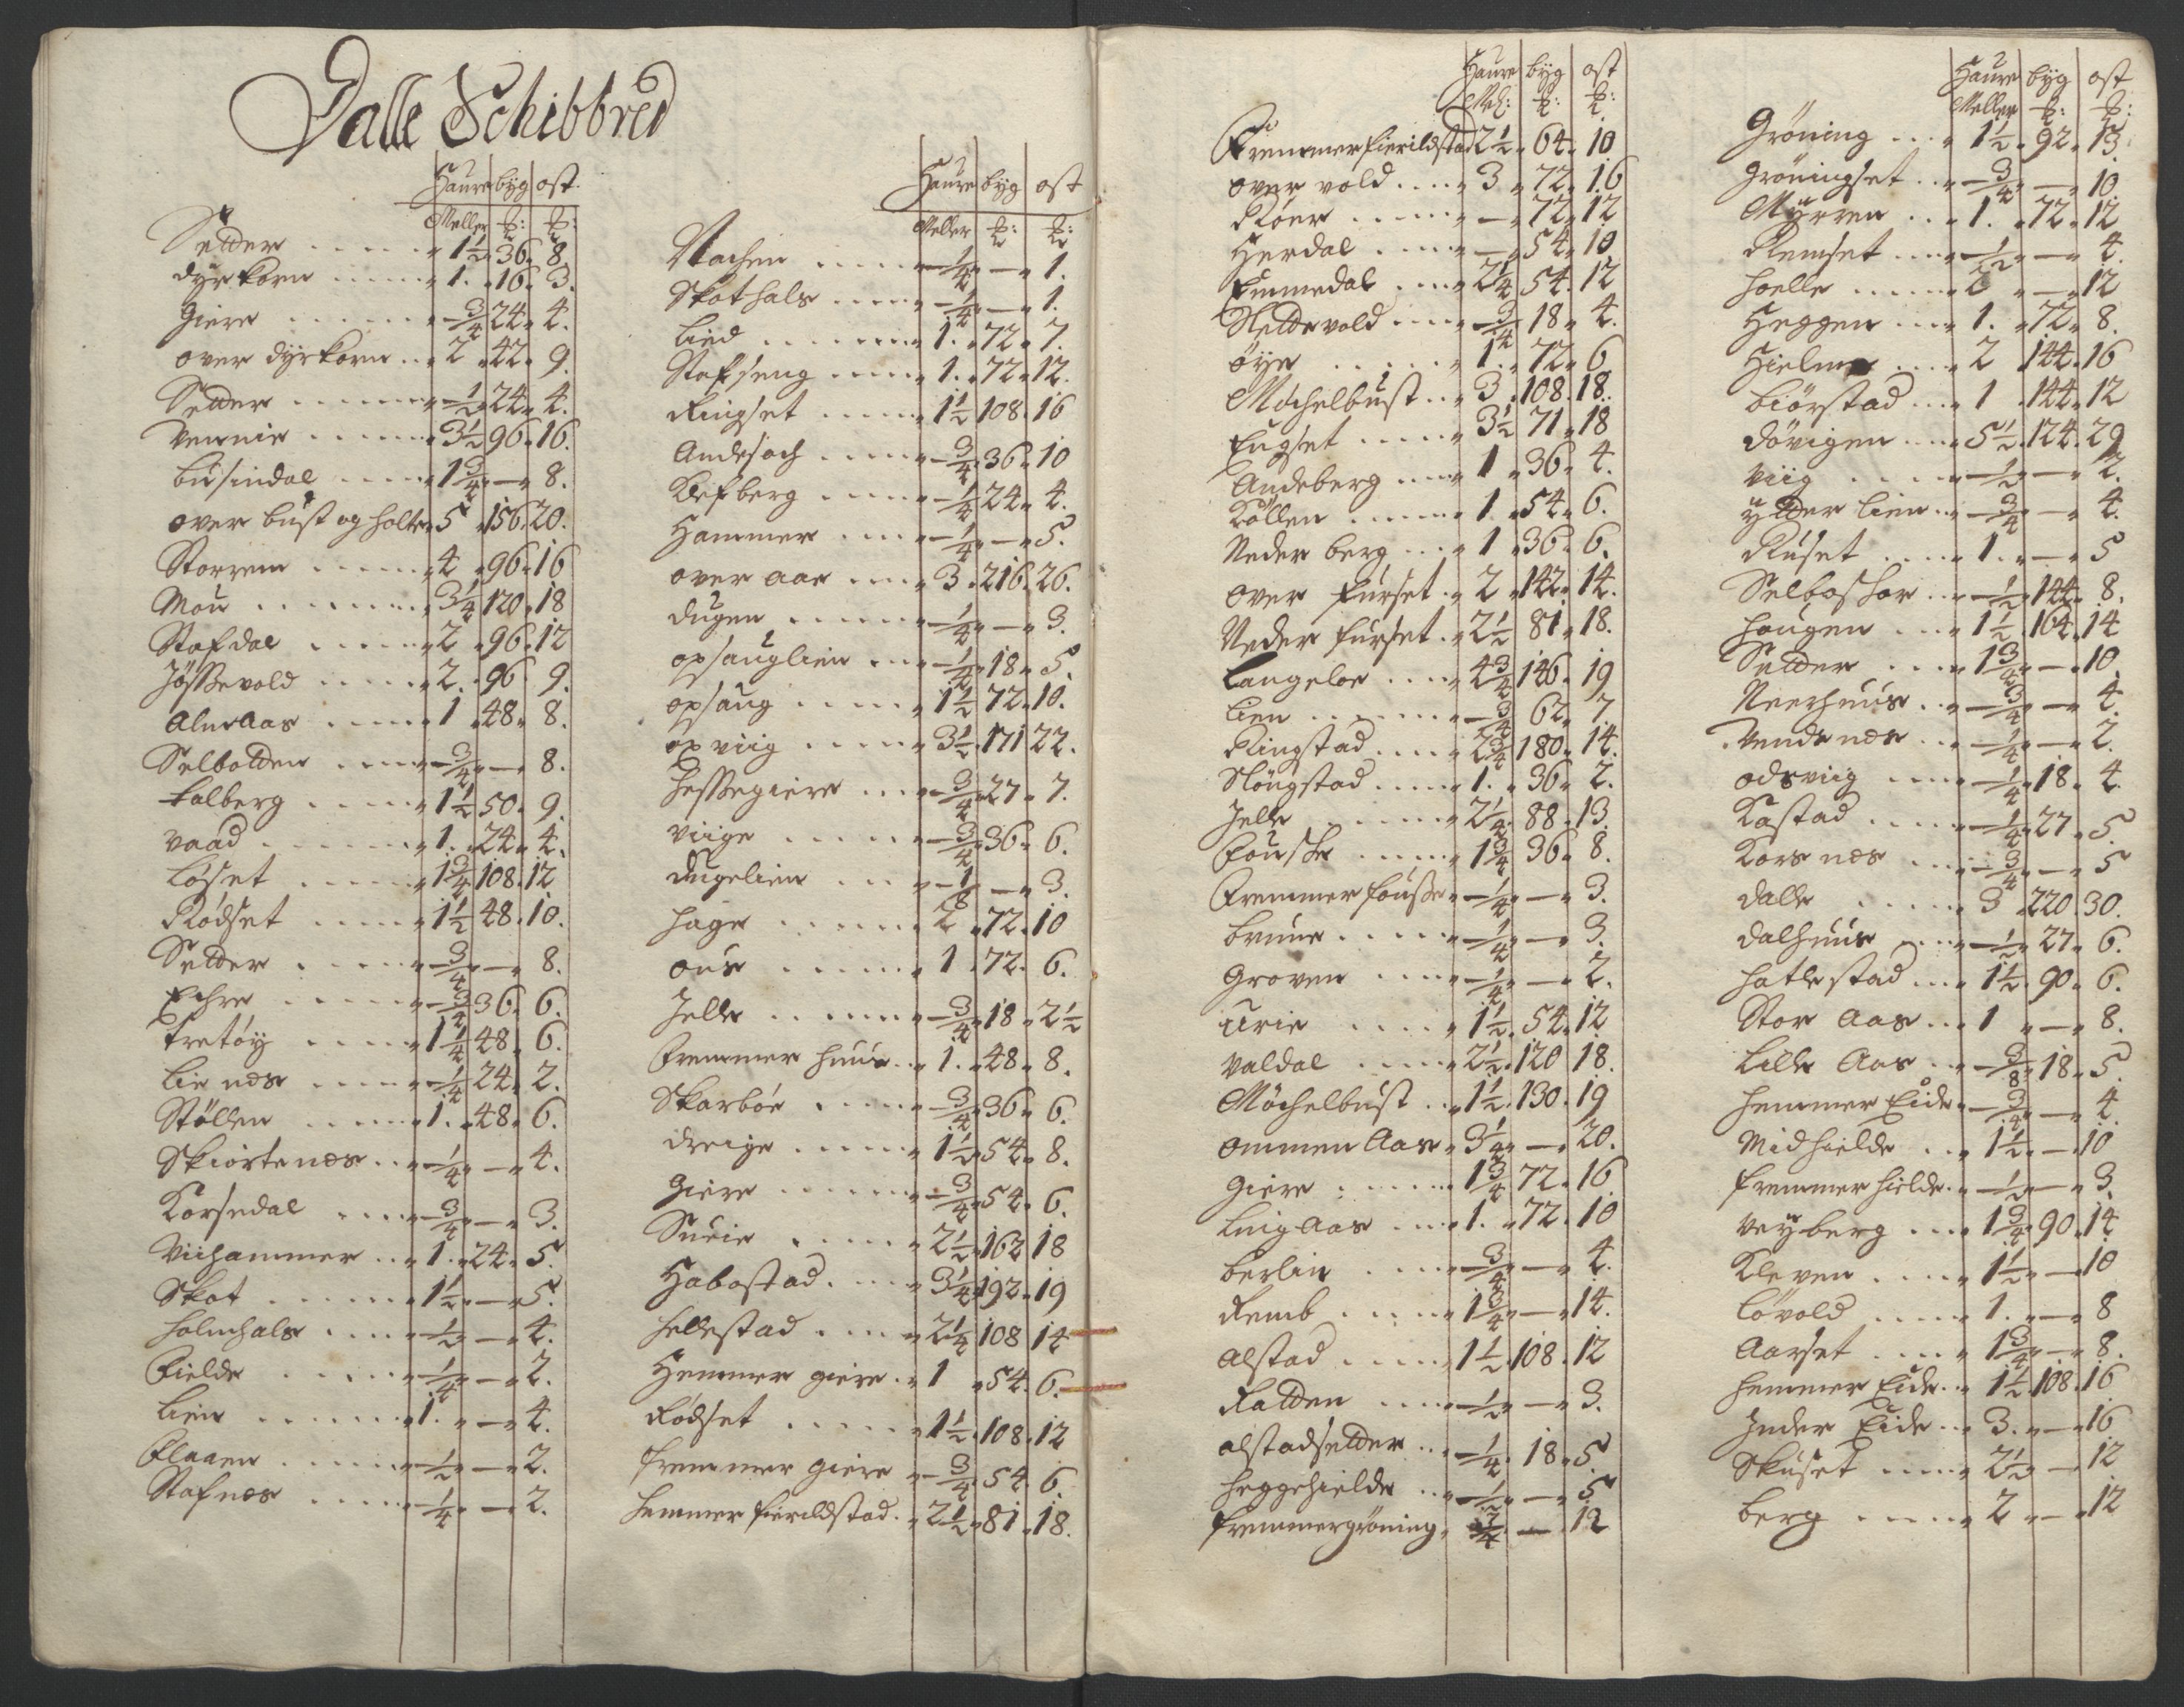 Dalle Schibbred
Haure byg ost.
Meller ℔: ℔:
Setter ..... 1½ 36. 8.
dyrkorn ..... 1. 16. 3.
Giere ...... ¾ 24. 4.
over dyrkorn .. 2 42. 9.
Setter ...... ½ 24. 4.
Vennie ...... 3½ 96. 16.
busindal ..... 1¾ — 8.
over bust og holte 5 156. 20.
Storrem ..... 4 96. 16
Mou ....... 3¼ 120. 18
Stafdal ..... 2 96. 12
Jøssevold ..... 2. 96 9.
AlneAas ..... 1 48. 8.
Selbotten .... ¾ — 8.
Falberg ..... 1½ 50. 9.
vaad ...... 1. 24. 4.
Løset ..... 1¾ 108. 12
Rødset ..... 1½ 48. 10.
Setter ..... ¾ — 8.
Echre ..... ¾ 36. 6.
Tretøy ..... 1¼ 48. 6.
Lie næs ..... ¼ 24. 2.
Støllen ..... 1. 48. 6.
Skiortenæs ... ¼ — 4.
Korsedal .... ¾ — 3.
Viihammer ... 1. 24. 5.
Skot ...... 1½ — 5.
holmhals .... ½ — 4.
Fielde ..... ¼ — 2.
Lien ...... 1. — 4.
Flaaen ..... ½ — 2.
Stafnæs .... ¼ — 2.
Haure byg ost
Meller ℔: ℔:
Vachen ..... ¼ — 1.
Skothals .... ¼ — 1.
Lied ....... 1. 72. 7.
Stafseng .... 1. 72. 12.
Ringset ..... 1½ 108. 16
Andesoch .... ¾ 36. 10
Klefberg .... ¼ 24. 4.
Hammer .... ¼ — 5.
over aae .... 3. 216. 26.
dugen ..... ¼ — 3.
opsauglien ... ¼ 18. 5.
opsaug ..... 1½ 72. 10.
opviig ..... 3½ 171 22.
hessegiere ... ¾ 27. 7.
viige ..... ¾ 36. 6.
dugelien ... ⅛ — 3.
hage ..... 2 72. 10
ous ..... 1. 72. 6.
Jelle ..... ¾ 18. 2½
Fremmer huus .. 1. 48. 8.
Skarbøe .... ¾ 36. 6.
dreige ..... 1½ 54. 8.
Giere ...... ¾ 54. 6.
Sueie ..... 2½ 162 18
Habostad .... 3¼ 192. 19
hellestad .... 2¼ 108 14
Hemmer giere .. 1 54. 6.
Rødset ..... 1½ 108. 12
fremmer giere ¾ 54. 6.
hemmer fierildstad. 2½ 81. 18.
Haure byg ost
Mel: ℔: ℔:
Fremmer fierildstad 2½ 64. 10
over vold .... 3 72. 16
Røer ..... — 72. 12
Herdal .... — 54. 10
Emmedal .... 2¼ 54. 12
Slettevold .... ¾ 18. 4.
øye ..... 1. 72. 6
Møchelbust .. 3. 108. 18.
Engset ..... 3½ 71. 18
Andeberg .... 1 36. 4.
Køllen ..... 1. 54. 6.
Neder berg ... 1 36. 6.
over furset .. 2 142. 14.
Neder furset .. 2½ 81. 18.
Langeloe .... 4¾ 146. 19
Lien ...... ¾ 62. 7.
Ringstad .... 2¾ 180. 14.
Sløngstad .... 1. 36. 2.
Jelle ..... 2¼ 88. 13.
Fouske ..... 1¾ 36. 8.
Fremmer fouske ¼ — 3.
brune ..... ¼ — 3.
Groven .... ¼ — 2.
Urie ..... 1½. 54. 12
valdal ..... 2½. 120 18.
Møchelbust .. 1½. 130. 19
ommen Aas 3½ — 20.
Giere ...... 1¾ 72. 16
LuigAas .... 1. 72. 10
berlin .... ¾ — 4.
Remb ..... 1¾ — 14.
alstad ..... 1½. 108. 12
Ratten .... ½ — 3.
alstadsetter .. ¼ 18. 5
heggehielde .. ½ — 5
fremmergrøning. ¾ — 12
Haure byg ost
Meller ℔: ℔:
Grøning .... 1½. 92. 13.
Grøningset .. ¾ — 10.
Myrren ... 1. 72. 12
Remset .... ½ — 4.
hoelle ..... 2 — 12
Heggen .... 1. 72. 8.
Hielme .... 2 144. 16
biørstad .... 1 144. 12
døvigen .... 5½. 124. 29
viig ..... ½ — 2.
ytter Lien .. ¾ — 4.
Ruset .... 1. — 5
Selboskar .. ½ 144. 8.
haugen .... 1½. 164. 14
Setter .... 1¾ — 10.
Neerhuus .. ¾ — 4.
Vends næs .. ¼ — 2.
odsviig .... ¼ 18. 4.
Kastad .... ¼ 27. 5.
Kors næs ... ¾ — 5
dalle ..... 3 220. 30.
dalhuus .... ½ 27. 6.
hatlestad ... 1½. 90. 6.
Stor Aas ... 1 — 8.
Lille Aas .. ⅜ 18. 5.
hemmer Eide ¾ — 4.
Midhielde .. 1½. — 10
fremmer hielde. ½ — 3.
veyberg .... 1¾ 90. 14
Kleven .... 1½ — 10
Løvold .... 1. — 8
Aarset .... 1¾ — 8.
hemmer Eide .. 1½ 108. 16
Inder Eide .. 3. — 16
Skuset .... 2½ — 12
berg ..... 2 — 12